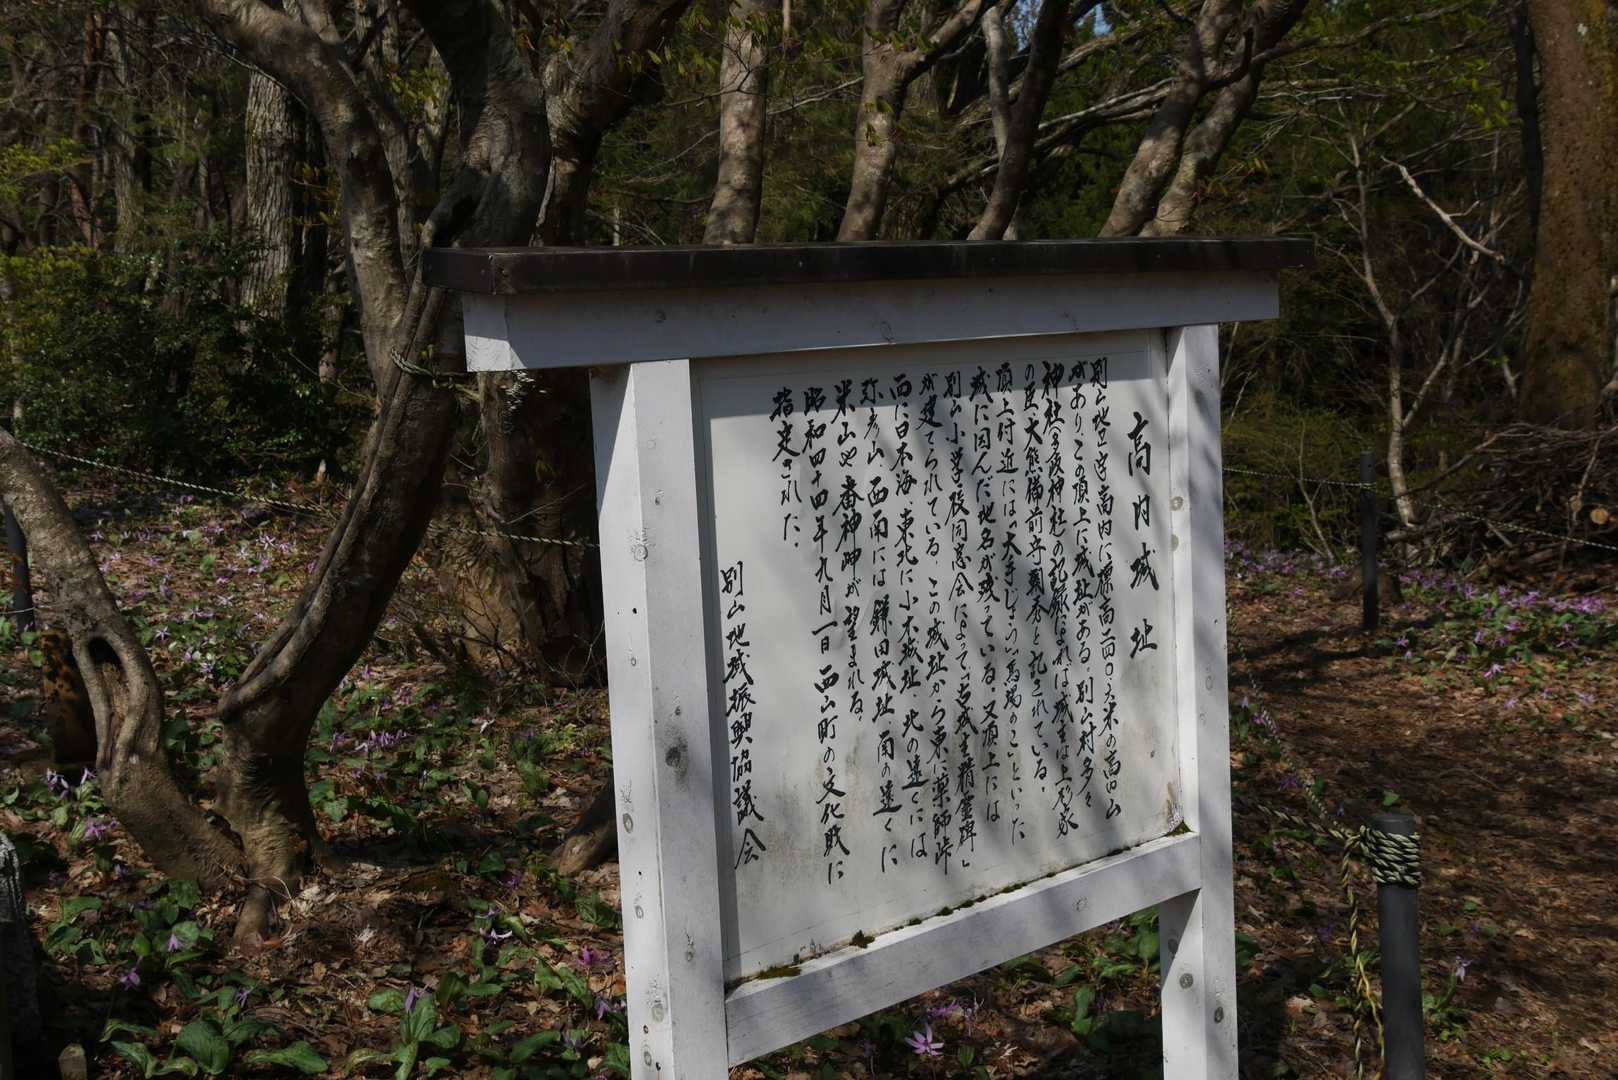 高内城址
別山地区字高内に標高二四〇.六米の高内山
があり、この頂上に城址がある。別山村多々
神社(多岐神社)の記録によれば城主は上杉家
の臣、大熊備前守朝秀と記されている。
頂上付近には「大手じょう」「馬場のこ」といった
城に因んだ地名が残っている。又頂上には
別山小学校同窓会によって「古城主精霊碑」
が建てられている。この城址から東に薬師峠
西に日本海、東北に小木城址、北の遠くには
弥彦山、西南には鎌田城址、南の遠くに
米山や番神岬が望まれる。
昭和四十四年九月一日 西山町の文化財に
指定された。
別山地域振興協議会